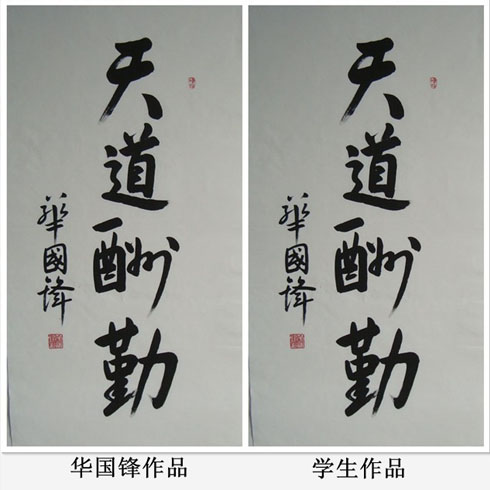 天道酬勤
華國鋒
天道酬勤
華國鋒
华国锋作品
学生作品